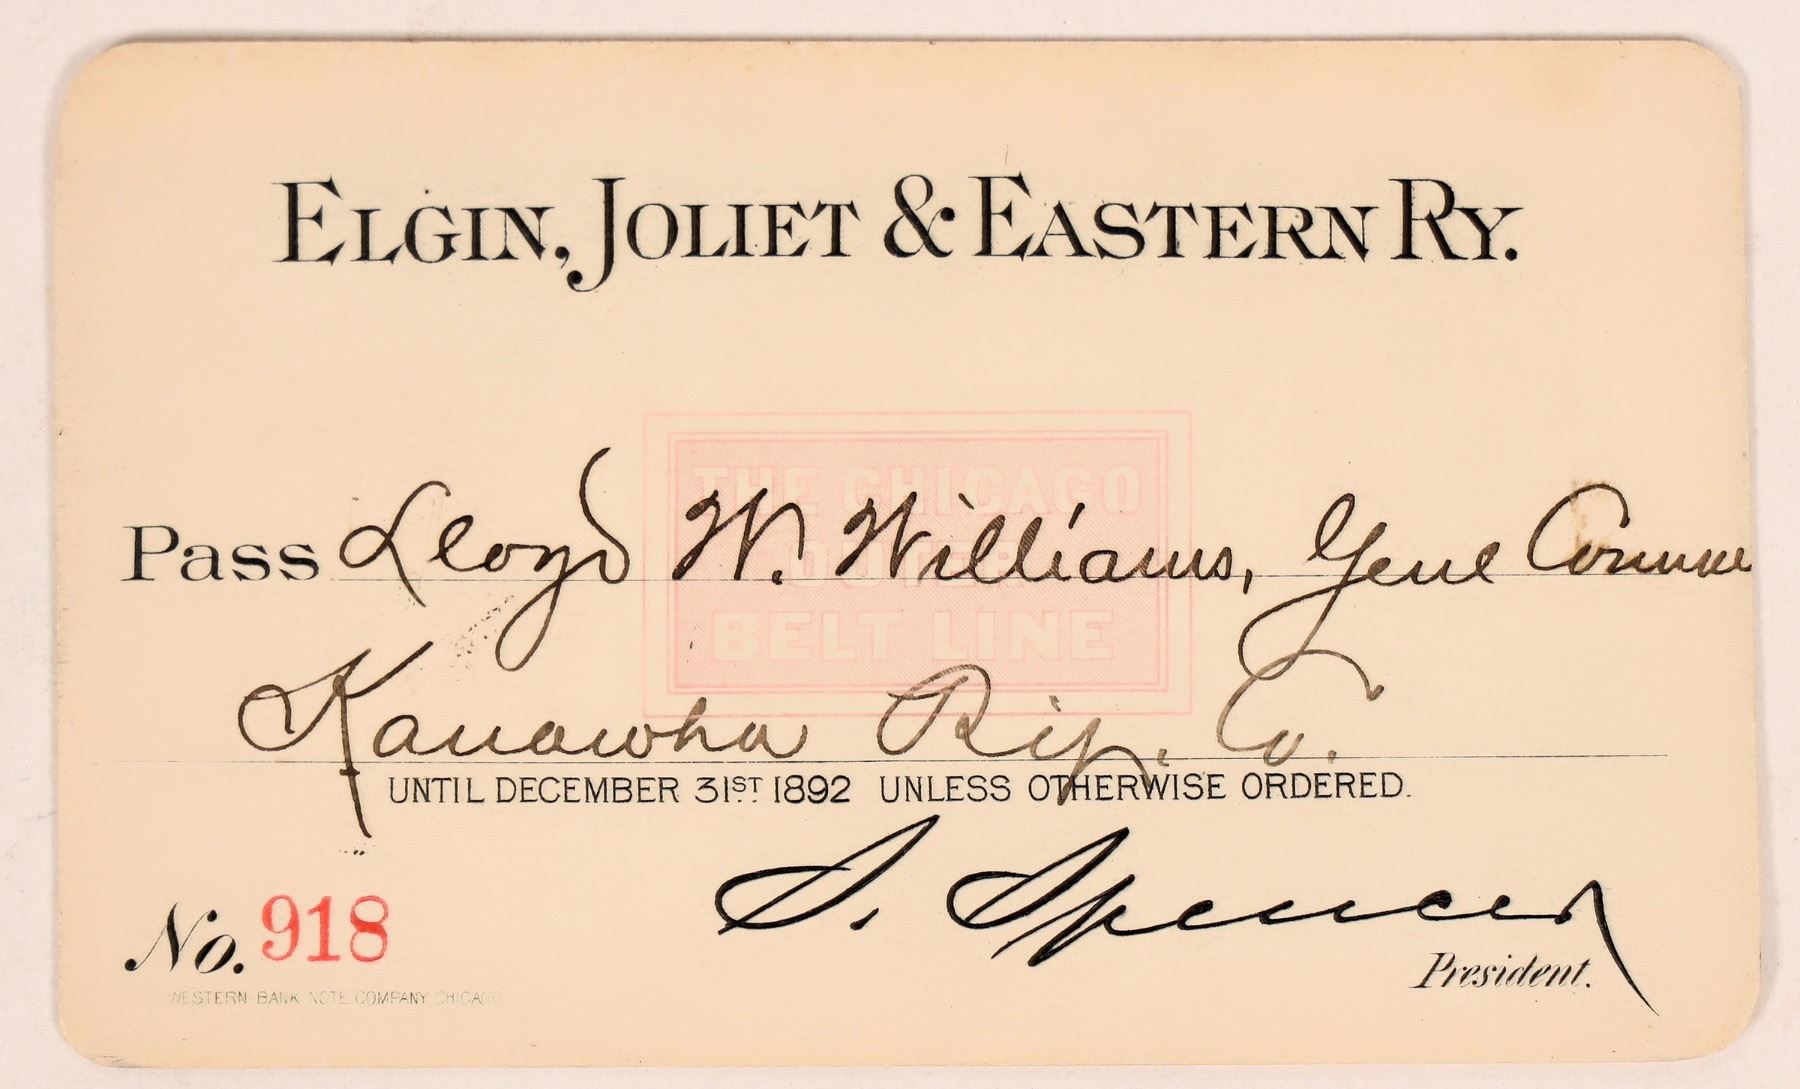 ELGIN, JOLIET & EASTERN RY.
THE CHICAGO
OUTER
BELT LINE
Pass Lloyd W. Williams, Genl
Kanawha Co.
UNTIL DECEMBER 31ST 1892 UNLESS OTHERWISE ORDERED.
S. Spencer
President.
No. 918
WESTERN BANK NOTE COMPANY CHICAGO